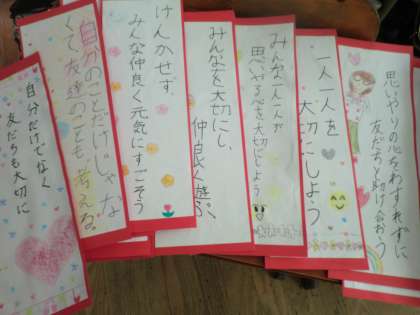 一人一人を
大切にしよう
思いやりの心をわすれずに
友だちと助け合おう
みんな一人一人が
思いやる心を大切にしよう
みんなを大切にし、
仲良く遊ぶ。
けんかせず、
みんな仲良く元気にすごそう
自分のことだけじゃな
くて、友達のことも考える。
自分だけでなく
友だちも大切に